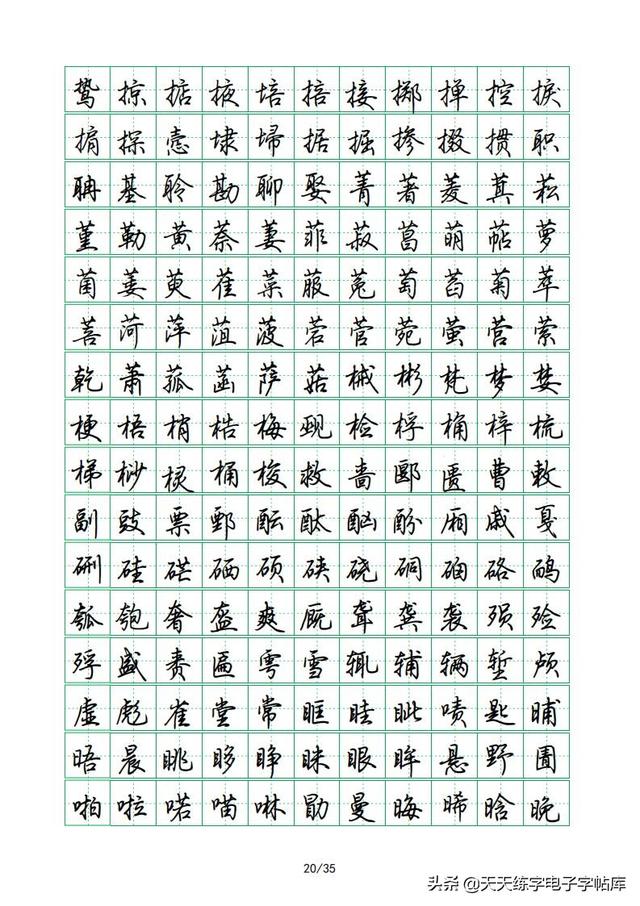 鸷掠掂掖培掊接掷掸控捩
掮探悫埭埽据掘掺掇掼职
聃基聆勘聊娶菁著菱萁菘
堇勒黄萘萋菲菽菖萌萜萝
菌萎萸萑菜菔菟萄萏菊萃
菩菏萍菹菠菪菅菀萤营萦
乾萧菰菡萨菇械彬梵梦婪
梗梧梢梏梅觋检桴桷梓梳
梯桫棂桶梭救啬郾匮曹敕
副豉票鄄酝酞酗酚厢戚戛
硎硅硭硒硕硖硗硐硇硌鸸
瓠匏奢盔爽厩聋龚袭殒殓
殍盛赉匾雩雪辄辅辆堑颅
虚彪雀堂常眶眭眦啧匙晡
晤晨眺眵睁眯眼眸悬野圃
啪啦喏喵啉勖曼晦晞晗晚
20/35
头条 @天天练字电子字帖库